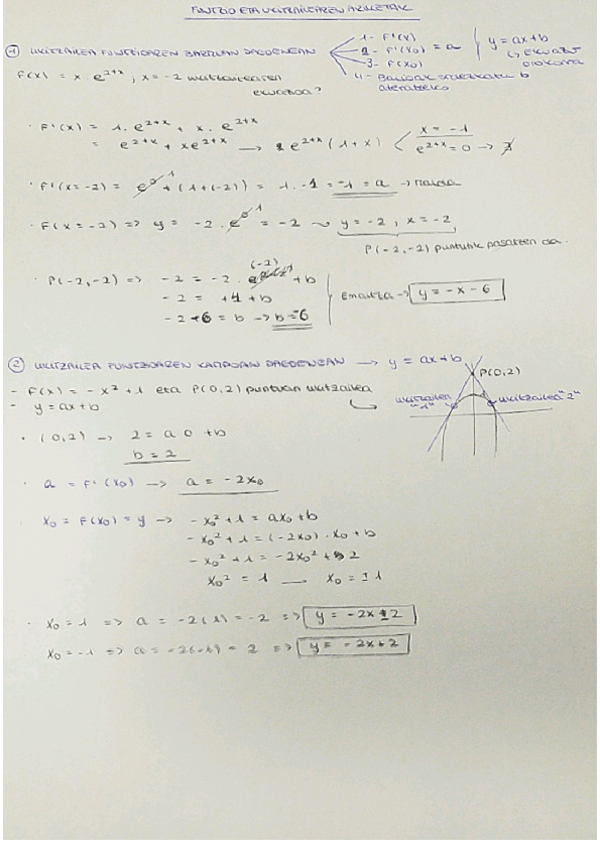 FUNTZIO ETA UKITZAILEAREN ARIKETAK
1 UKITZAILEA FUNTZIOAREN BARRUAN DAGOENEAN
1- F'(x)
2- F'(x₀) = a
3- F(x₀)
4- Balioak ordezkatu b ateratzeko
y = ax+b
↳ ekuazio orokorra
F(x) = x · e^(2+x), x = -2 ukitzailearen ekuazioa?
· F'(x) = 1 · e^(2+x) + x · e^(2+x)
= e^(2+x) + xe^(2+x) → e^(2+x) (1+x) < x = -1
e^(2+x) = 0 → ∄
· F'(x=-2) = e^0 1 · (1+(-2)) = 1 · -1 = -1 = a → malda
· F(x=-2) => y = -2 · e^0 1 = -2 ~ y = -2, x = -2
P(-2,-2) puntutik pasatzen da.
(-2)
· P(-2,-2) => -2 = -2 · + b
-2 = +4 + b
-2 + 6 = b → b = -6
Emaitza → y = -x - 6
2 UKITZAILEA FUNTZIOAREN KANPOAN DAGOENEAN → y = ax+b
- F(x) = -x² + 1 eta P(0,2) puntuan ukitzailea
- y = ax+b
P(0,2)
ukitzailea "1"
ukitzailea "2"
· (0,2) → 2 = a 0 + b
b = 2
· a = F'(x₀) → a = -2x₀
x₀ = F(x₀) = y → -x₀² + 1 = ax₀ + b
-x₀² + 1 = (-2x₀) · x₀ + b
-x₀² + 1 = -2x₀² + 2
x₀² = 1 — x₀ = ±1
· x₀ = 1 => a = -2(1) = -2 => y = -2x + 2
x₀ = -1 => a = -2(-1) = 2 => y = -2x + 2